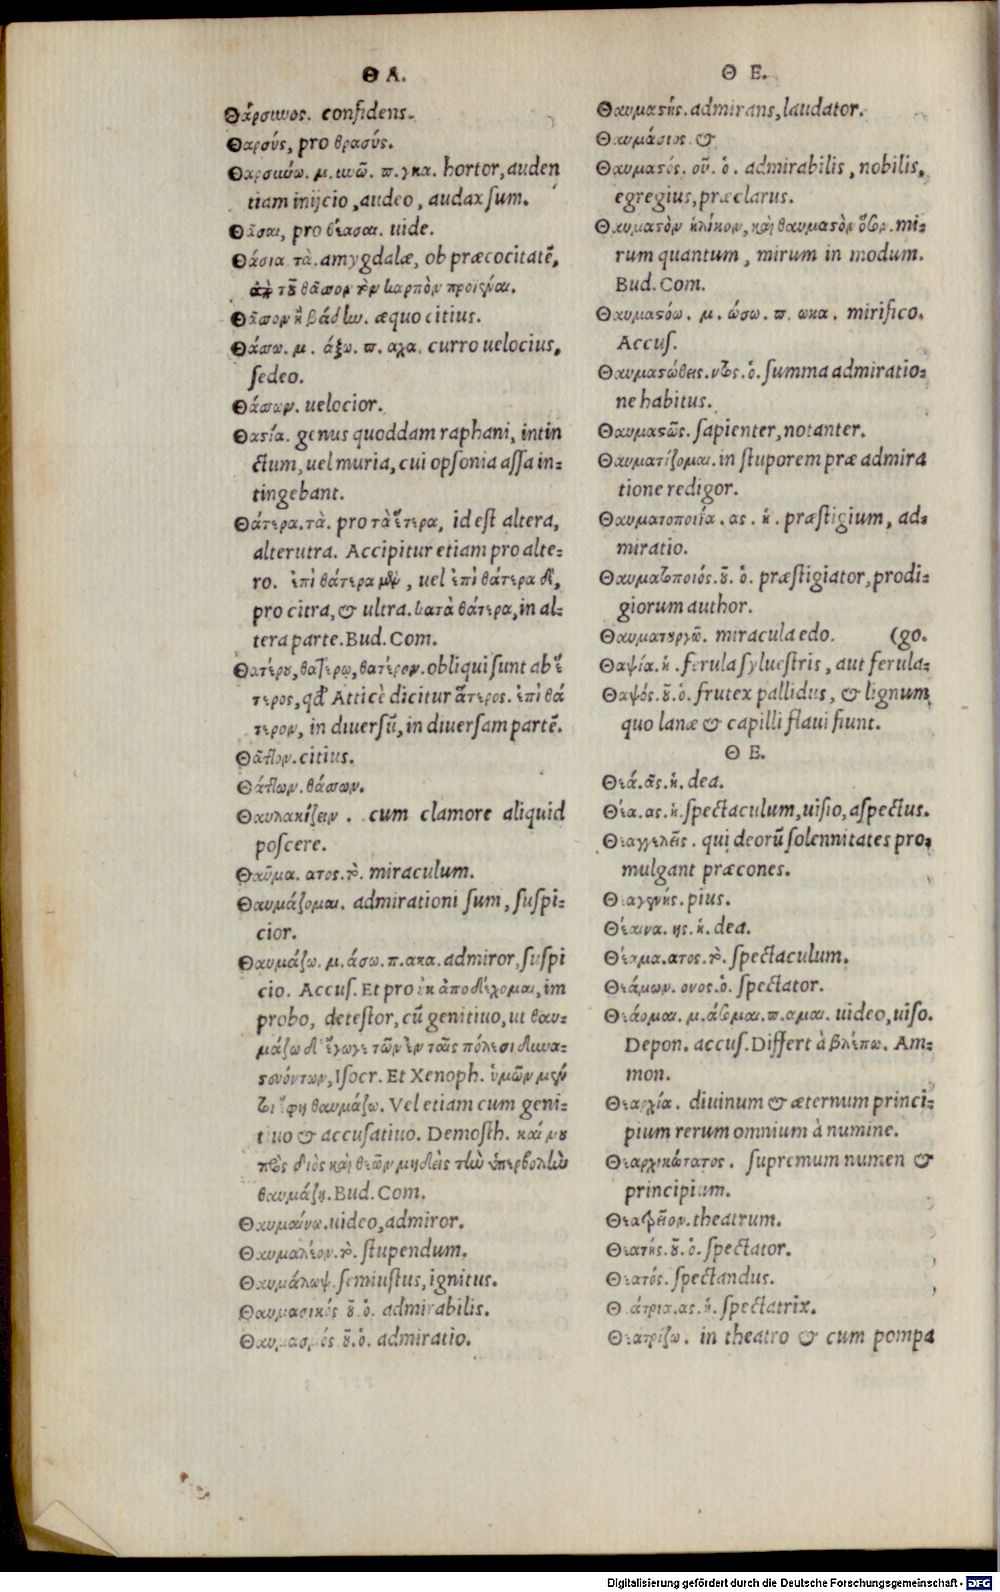 Θ Α.
Θάρσυνος. confidens.
Θαρσύς, pro θρασύς.
Θαρσύνω. μ. υνῶ. π. γκα. hortor, auden
tiam inijcio, audeo, audax sum.
Θᾶσαι, pro θέασαι. uide.
Θάσια τὰ. amygdalæ, ob præcocitatē,
θᾶσσον τὸν καρπὸν προϊέναι.
Θᾶσσον ἢ βάδην. æquo citius.
Θάσσω. μ. άξω. π. αχα. curro uelocius,
sedeo.
Θάσσων. uelocior.
Θασία. genus quoddam raphani, intin
ctum, uel muria, cui opsonia assa in-
tingebant.
Θάτερα. τὰ. pro τὰ ἕτερα, id est altera,
alterutra. Accipitur etiam pro alte-
ro. ἐπὶ θάτερα μὲν, uel ἐπὶ θάτερα δὲ,
pro citra, & ultra. κατὰ θάτερα, in al-
tera parte. Bud. Com.
Θατέρου, θατέρῳ, θατέρον. obliqui sunt ab ἕ
τερος, qđ Atticè dicitur ἅτερος. ἐπὶ θά
τερον, in diuersū, in diuersam partē.
Θᾶττον. citius.
Θάττων. θάσσων.
Θαυλακίζειν. cum clamore aliquid
poscere.
Θαῦμα. ατος. τὸ. miraculum.
Θαυμάζομαι. admirationi sum, suspi-
cior.
Θαυμάζω. μ. άσω. π. ακα. admiror, suspi
cio. Accus. Et pro οὐκ ἀποδέχομαι, im
probo, detestor, cū genitiuo, ut θαυ-
μάζω δ' ἔγωγε τῶν ἐν ταῖς πόλεσι δυνα-
στευόντων, Isocr. Et Xenoph. ὑμῶν μὲν
ἔφη θαυμάζω. Vel etiam cum geni-
tiuo & accusatiuo. Demosth. καί μου
πρὸς διὸς καὶ θεῶν μηδεὶς τὴν ὑπερβολὴν
θαυμάζῃ. Bud. Com.
Θαυμαίνω. uideo, admiror.
Θαυμαλέον. τὸ. stupendum.
Θαυμάλωψ. semiustus, ignitus.
Θαυμασικός οῦ. ὁ. admirabilis.
Θαυμασμός οῦ. ὁ. admiratio.
Θ Ε.
Θαυμαστής. admirans, laudator.
Θαυμάσιος. &
Θαυμαστός. οῦ. ὁ. admirabilis, nobilis,
egregius, præclarus.
Θαυμαστὸν ἡλίκον, καὶ θαυμαστὸν ὅσον. mi-
rum quantum, mirum in modum.
Bud. Com.
Θαυμαστόω. μ. ώσω. π. ωκα. mirifico.
Accus.
Θαυμαστωθεις. ντος. ὁ. summa admiratio-
ne habitus.
Θαυμαστῶς. sapienter, notanter.
Θαυματίζομαι. in stuporem præ admira
tione redigor.
Θαυματοποιΐα. ας. ἡ. præstigium, ad-
miratio.
Θαυματοποιός. οῦ. ὁ. præstigiator, prodi-
giorum author.
Θαυματουργῶ. miracula edo. (go.
Θαψία. ἡ. ferula syluestris, aut ferula-
Θαψός. οῦ. ὁ. frutex pallidus, & lignum
quo lanæ & capilli flaui fiunt.
Θ Ε.
Θεά. ᾶς. ἡ. dea.
Θέα. ας. ἡ. spectaculum, uisio, aspectus.
Θεαγγελεῖς. qui deorū solennitates pro-
mulgant præcones.
Θεαγενής. pius.
Θέαινα. ης. ἡ. dea.
Θέαμα. ατος. τὸ. spectaculum.
Θεάμων. ονος. ὁ. spectator.
Θεάομαι. μ. άσομαι. π. αμαι. uideo, uiso.
Depon. accus. Differt à βλέπω. Am-
mon.
Θεαρχία. diuinum & æternum princi-
pium rerum omnium à numine.
Θεαρχικώτατος. supremum numen &
principium.
Θεατρεῖον. theatrum.
Θεατής. οῦ. ὁ. spectator.
Θεατός. spectandus.
Θεάτρια. ας. ἡ. spectatrix.
Θεατρίζω. in theatro & cum pompa
Digitalisierung gefördert durch die Deutsche Forschungsgemeinschaft - DFG